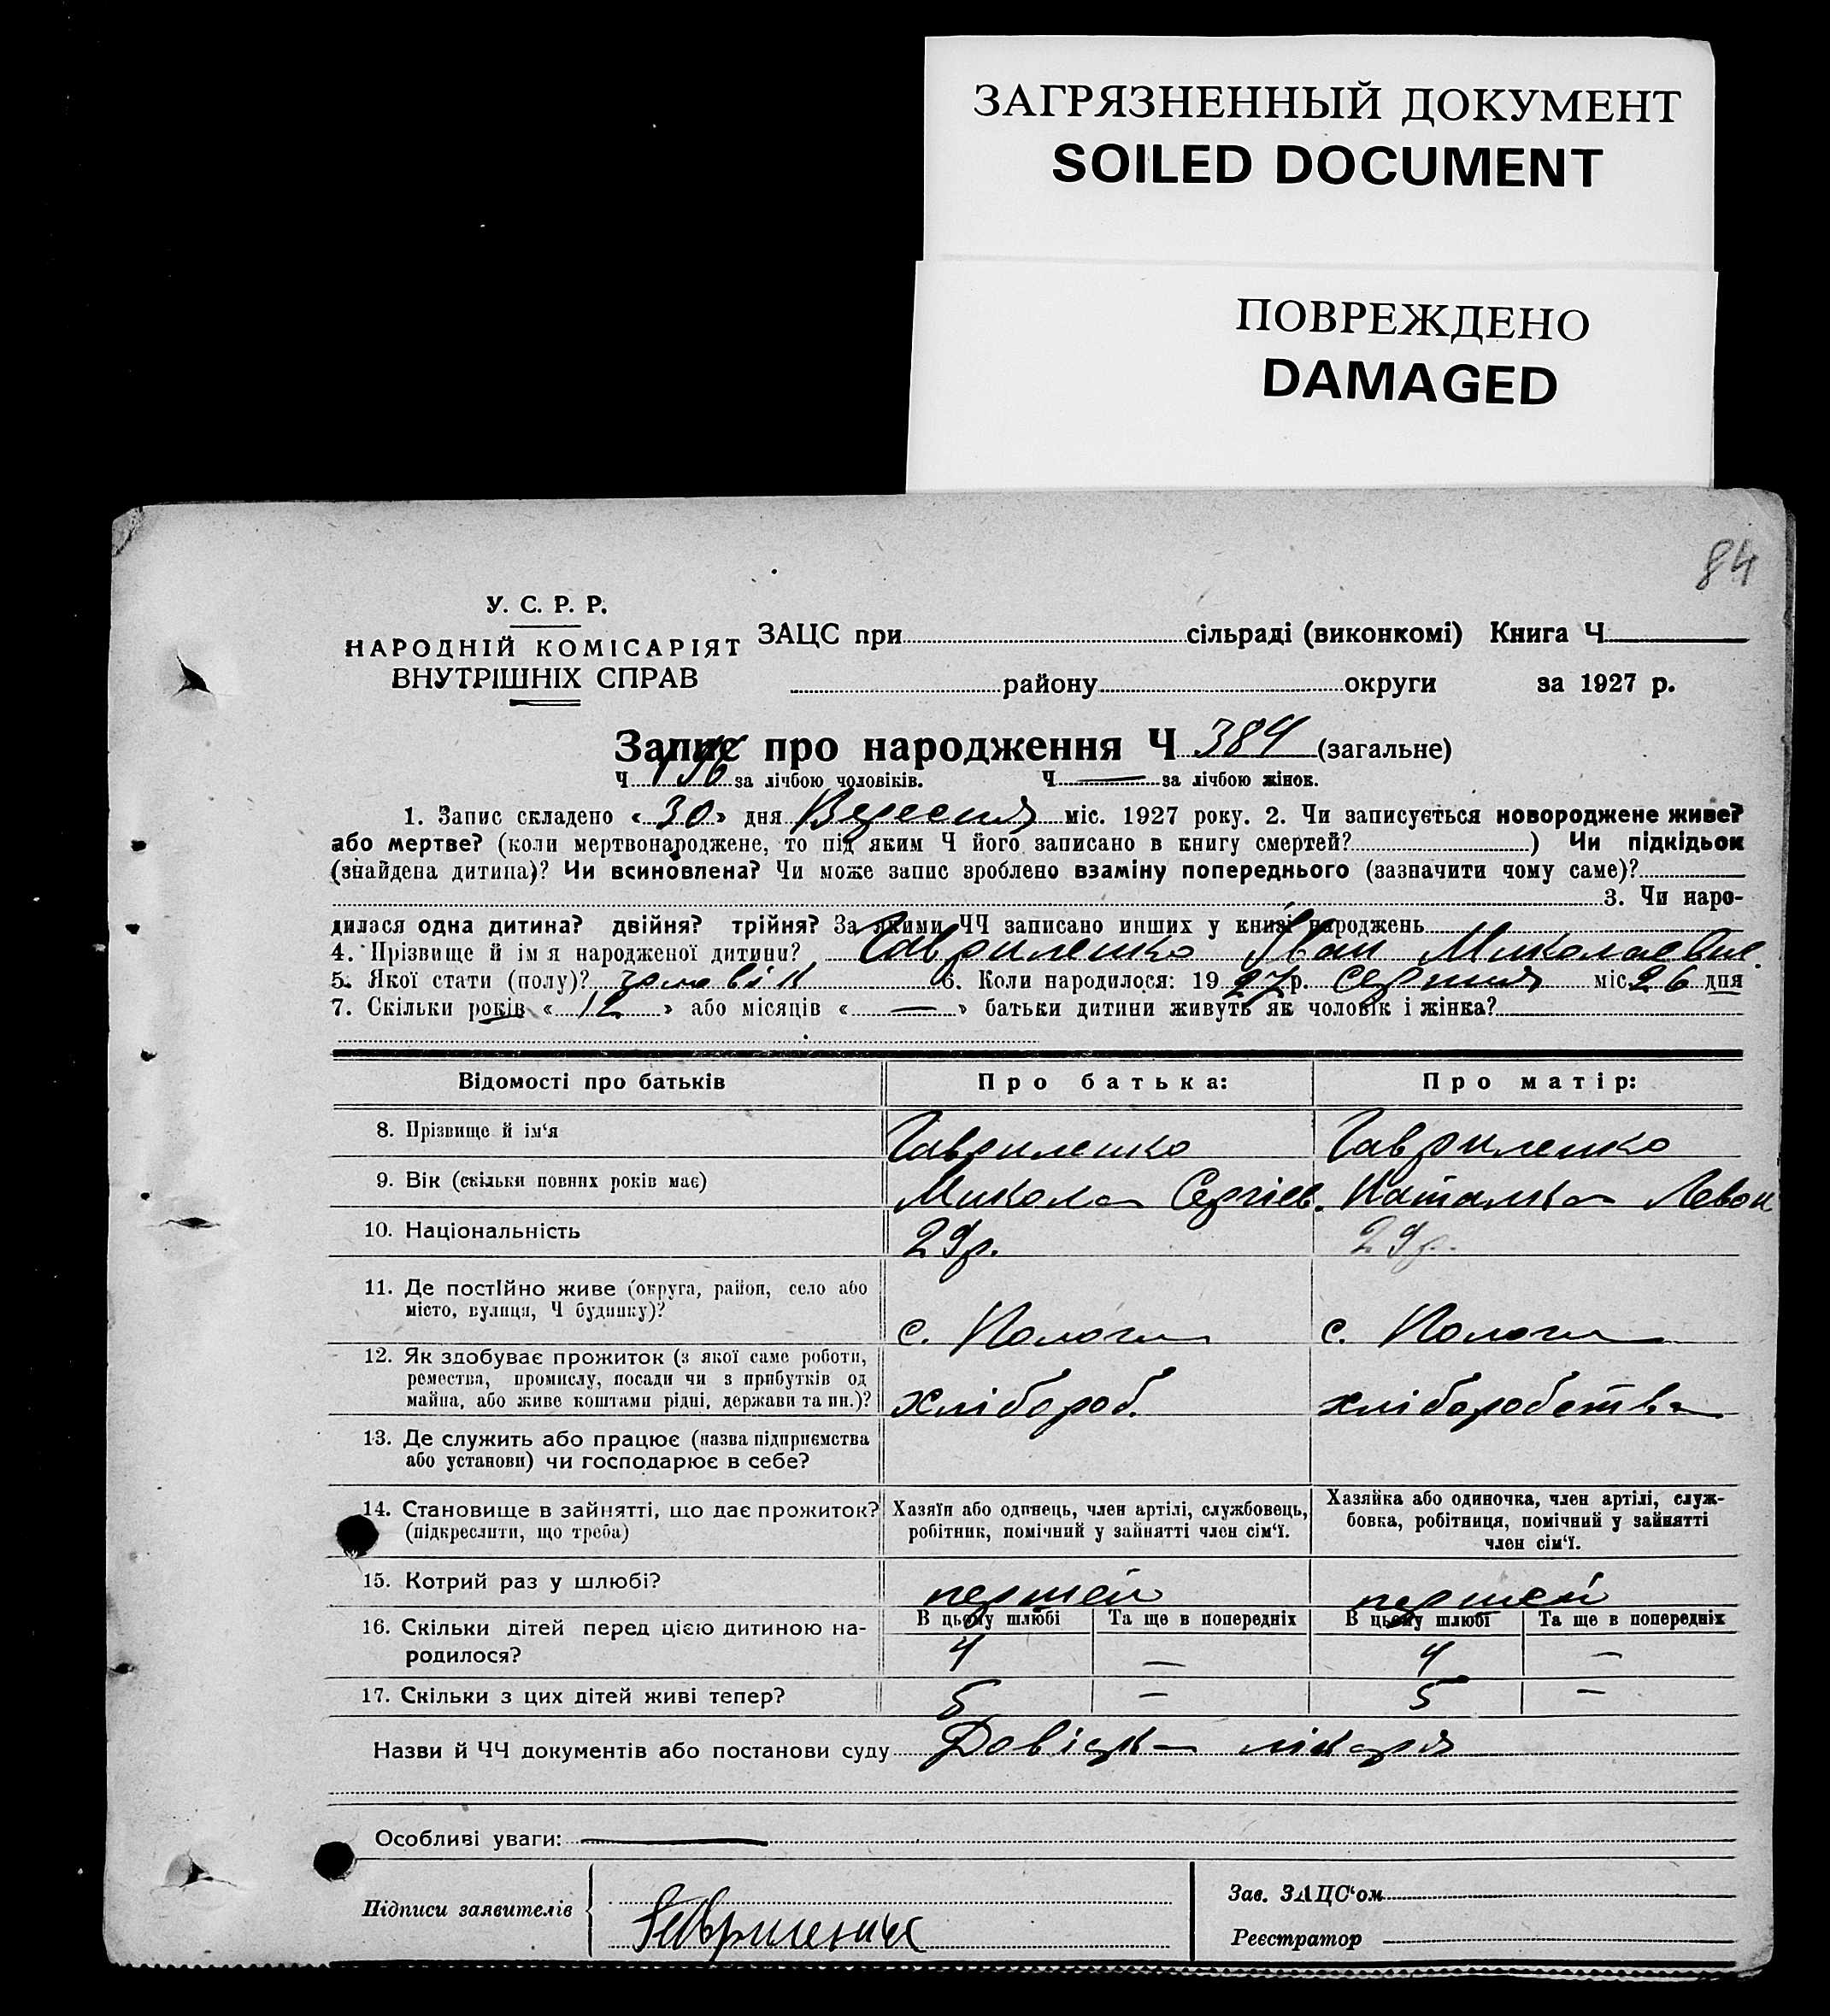 ЗАГРЯЗНЕННЫЙ ДОКУМЕНТ
SOILED DOCUMENT
ПОВРЕЖДЕНО
DAMAGED
84
У. С. Р. Р.
НАРОДНІЙ КОМІСАРІЯТ
ВНУТРІШНІХ СПРАВ
ЗАЦС при сільраді (виконкомі) Книга Ч
району округи за 1927 р.
Запис про народження Ч 384 (загальне)
Ч 196 за лічбою чоловіків. Ч — за лічбою жінок.
1. Запис складено «30» дня Вересня міс. 1927 року. 2. Чи записується новороджене живе?
або мертве? (коли мертвонароджене, то під яким Ч його записано в книгу смертей? ) Чи підкідьок
(знайдена дитина)? Чи всиновлена? Чи може запис зроблено взаміну попереднього (зазначити чому саме)?
3. Чи наро-
дилася одна дитина? двійня? трійня? За якими ЧЧ записано инших у книзі народжень
4. Прізвище й ім я народженої дитини? Гавриленко Іван Миколаєвич.
5. Якої стати (полу)? чоловік 6. Коли народилося: 1927 р. серпня міс. 26 дня
7. Скільки років «12» або місяців «—» батьки дитини живуть як чоловік і жінка?
Відомості про батьків Про батька: Про матір:
8. Прізвище й ім‘я Гавриленко Гавриленко
9. Вік (скільки повних років має) Микола Сергієв. Наталка Левон
10. Національність 29р. 29р.
11. Де постійно живе (округа, район, село або
місто, вулиця, Ч будинку)? с. Пологи с. Пологи
12. Як здобуває прожиток (з якої саме роботи,
ремества, промислу, посади чи з прибутків од
майна, або живе коштами рідні, держави та ин.)? хлібороб. хліборобства
13. Де служить або працює (назва підприємства
або установи) чи господарює в себе?
14. Становище в зайнятті, що дає прожиток?
(підкреслити, що треба)
Хазяїн або одинець, член артілі, службовець,
робітник, помічний у зайнятті член сім‘ї.
Хазяйка або одиночка, член артілі, служ-
бовка, робітниця, помічний у зайнятті
член сім‘ї.
15. Котрий раз у шлюбі? першій першій
В цьому шлюбі Та ще в попередніх В цьому шлюбі Та ще в попередніх
16. Скільки дітей перед цією дитиною на-
родилося? 4 — 4 —
17. Скільки з цих дітей живі тепер? 5 — 5 —
Назви й ЧЧ документів або постанови суду Довідка лікаря
Особливі уваги: —
Підписи заявителів
Гавриленко
Зав. ЗАЦС‘ом
Реєстратор